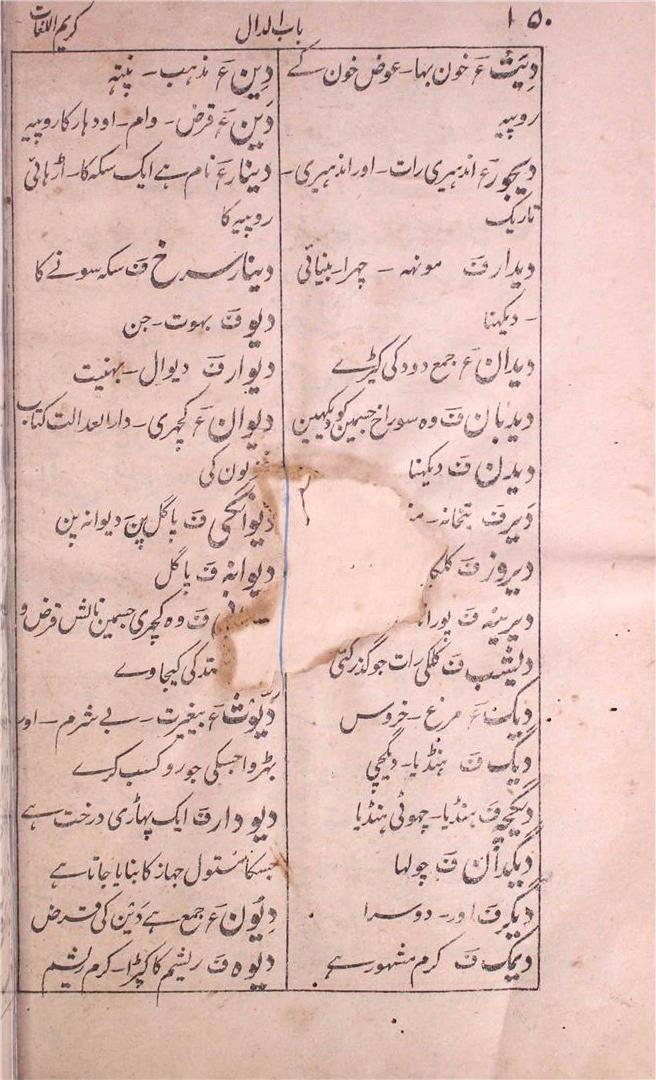 ۱۵۰
باب الدال
کریم اللغات
دِیَتْ ءَ خون بہا۔ عوض خون کے
روپیہ
دیجور ءَ اندہیری رات۔ اور اندہیری۔
تاریک
دیدار فَ مونہہ ۔ چہرا۔ بینائی
۔ دیکہنا
دیدان ءَ جمع دود کی کیڑے
دیدبان فَ وہ سوراخ جسمین کو دیکہین
دیدن فَ دیکہنا
دَیر فَ بتخانہ۔
دیروز فَ
دیرینہ فَ
دیشب فَ کلکی رات جو گذر گئی
دیک ءَ مرغ۔ خروس
دیگ فَ ہنڈیا۔ دیگچی
دیگچہ فَ ہنڈیا۔ چہوٹی ہنڈیا
دیگدان فَ چولہا
دیگر فَ اور۔ دوسرا
دیمک فَ کرم مشہور ہے
دِین ءَ مذہب۔ پنتہہ
دَین ءَ قرض۔ وام۔ اودہار کا روپیہ
دینار ءَ نام ہے ایک سکہ کا۔ اڑہائی
روپیہ کا
دینار سرخ فَ سکہ سونے کا
دیو فَ بہوت۔ جن
دیوار فَ دیوال۔ بہنیت
دیوان ءَ کچہری۔ دار العدالت کتاب
کی
دیوانگی فَ پاگل پن دیوانہ پن
دیوانہ فَ پاگل
فَ وہ کچہری جسمین نالش قرض و
کی کیجاوے
دَیّوث ءَ بیغیرت۔ بے شرم۔ اور
بہڑوا جسکی جورو کسب کرے
دیودار فَ ایک پہاڑی درخت ہے
جسکا مستول جہاز کا بنایا جاتا ہے
دیُون ءَ جمع ہے دَین کی قرض
دیوہ فَ ریشم کا کیڑا۔ کرم ریشم